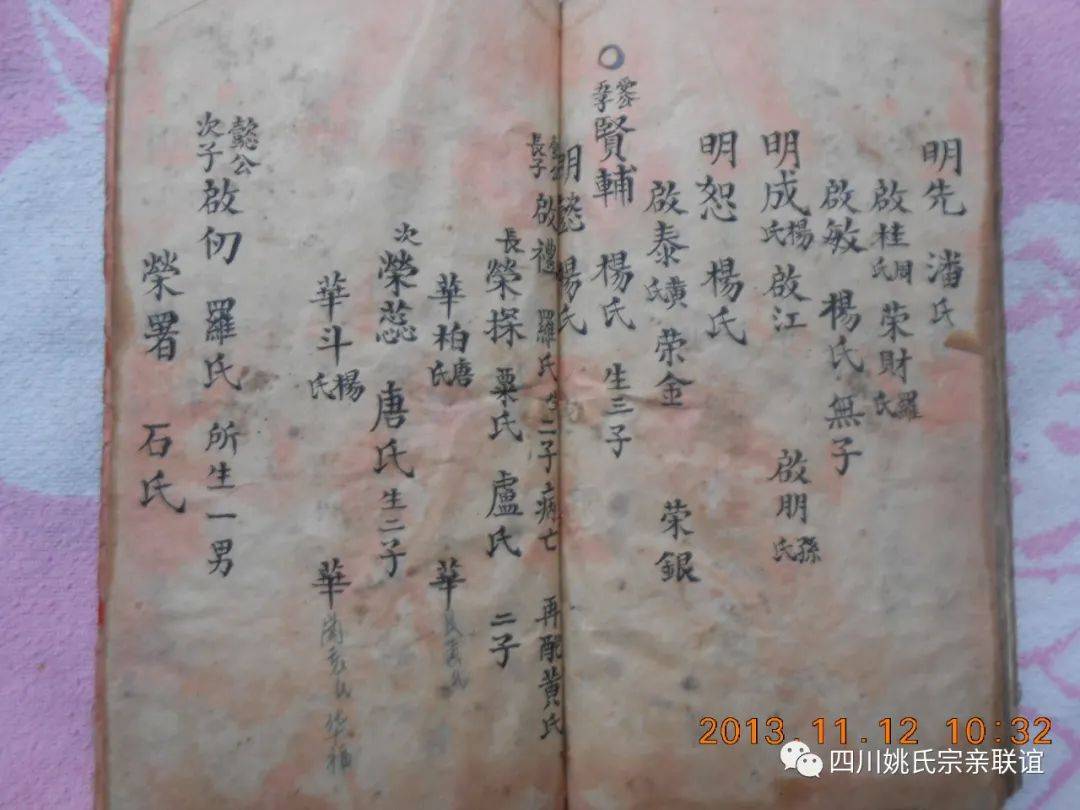 明先 潘氏
啟桂 周氏 荣財 羅氏
啟敏 楊氏 無子
明成 楊氏 啟江 啟朋 孫氏
明恕 楊氏
啟泰 黄氏 荣金 荣銀
賢輔 楊氏 生三子
明懿 楊氏
長子 啟禮 羅氏 生二子 病亡 再配黄氏
長 榮探 粟氏 盧氏 二子
華柏 唐氏 華
次 榮蕊 唐氏 生二子
華斗 楊氏 華
懿公次子 啟仞 羅氏 所生一男
榮署 石氏
2013.11.12 10:32
四川姚氏宗亲联谊